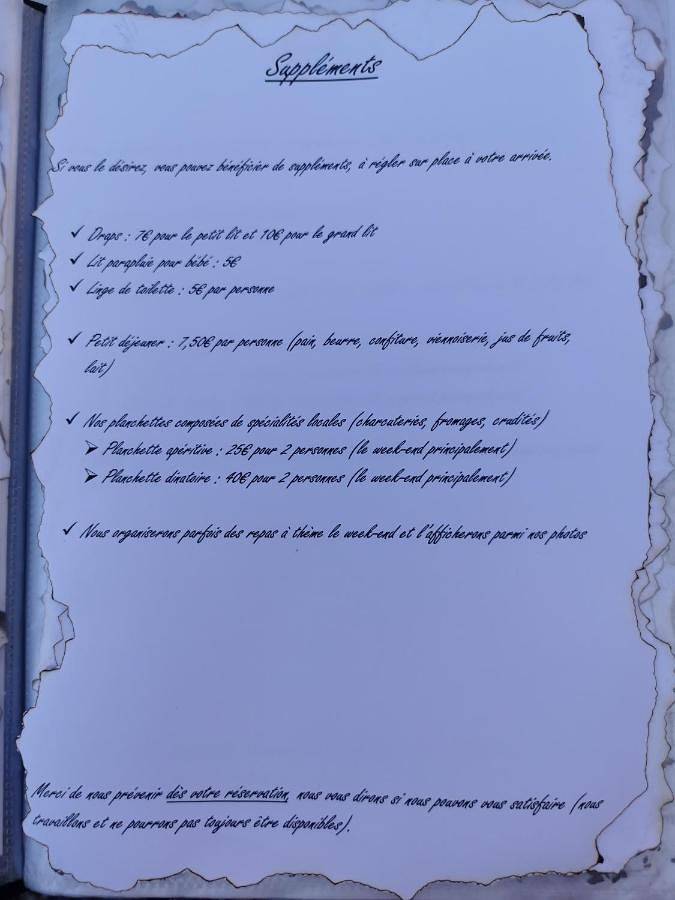 Suppléments
Si vous le désirez, vous pouvez bénéficier de suppléments, à régler sur place à votre arrivée.
✓ Draps : 7€ pour le petit lit et 10€ pour le grand lit
✓ Lit parapluie pour bébé : 5€
✓ Linge de toilette : 5€ par personne
✓ Petit déjeuner : 7,50€ par personne (pain, beurre, confiture, viennoiserie, jus de fruits,
lait)
✓ Nos planchettes composées de spécialités locales (charcuteries, fromages, crudités)
➢ Planchette apéritive : 25€ pour 2 personnes (le week-end principalement)
➢ Planchette dinatoire : 40€ pour 2 personnes (le week-end principalement)
✓ Nous organiserons parfois des repas à thème le week-end et l'afficherons parmi nos photos
Merci de nous prévenir dès votre réservation, nous vous dirons si nous pouvons vous satisfaire (nous
travaillons et ne pourrons pas toujours être disponibles).